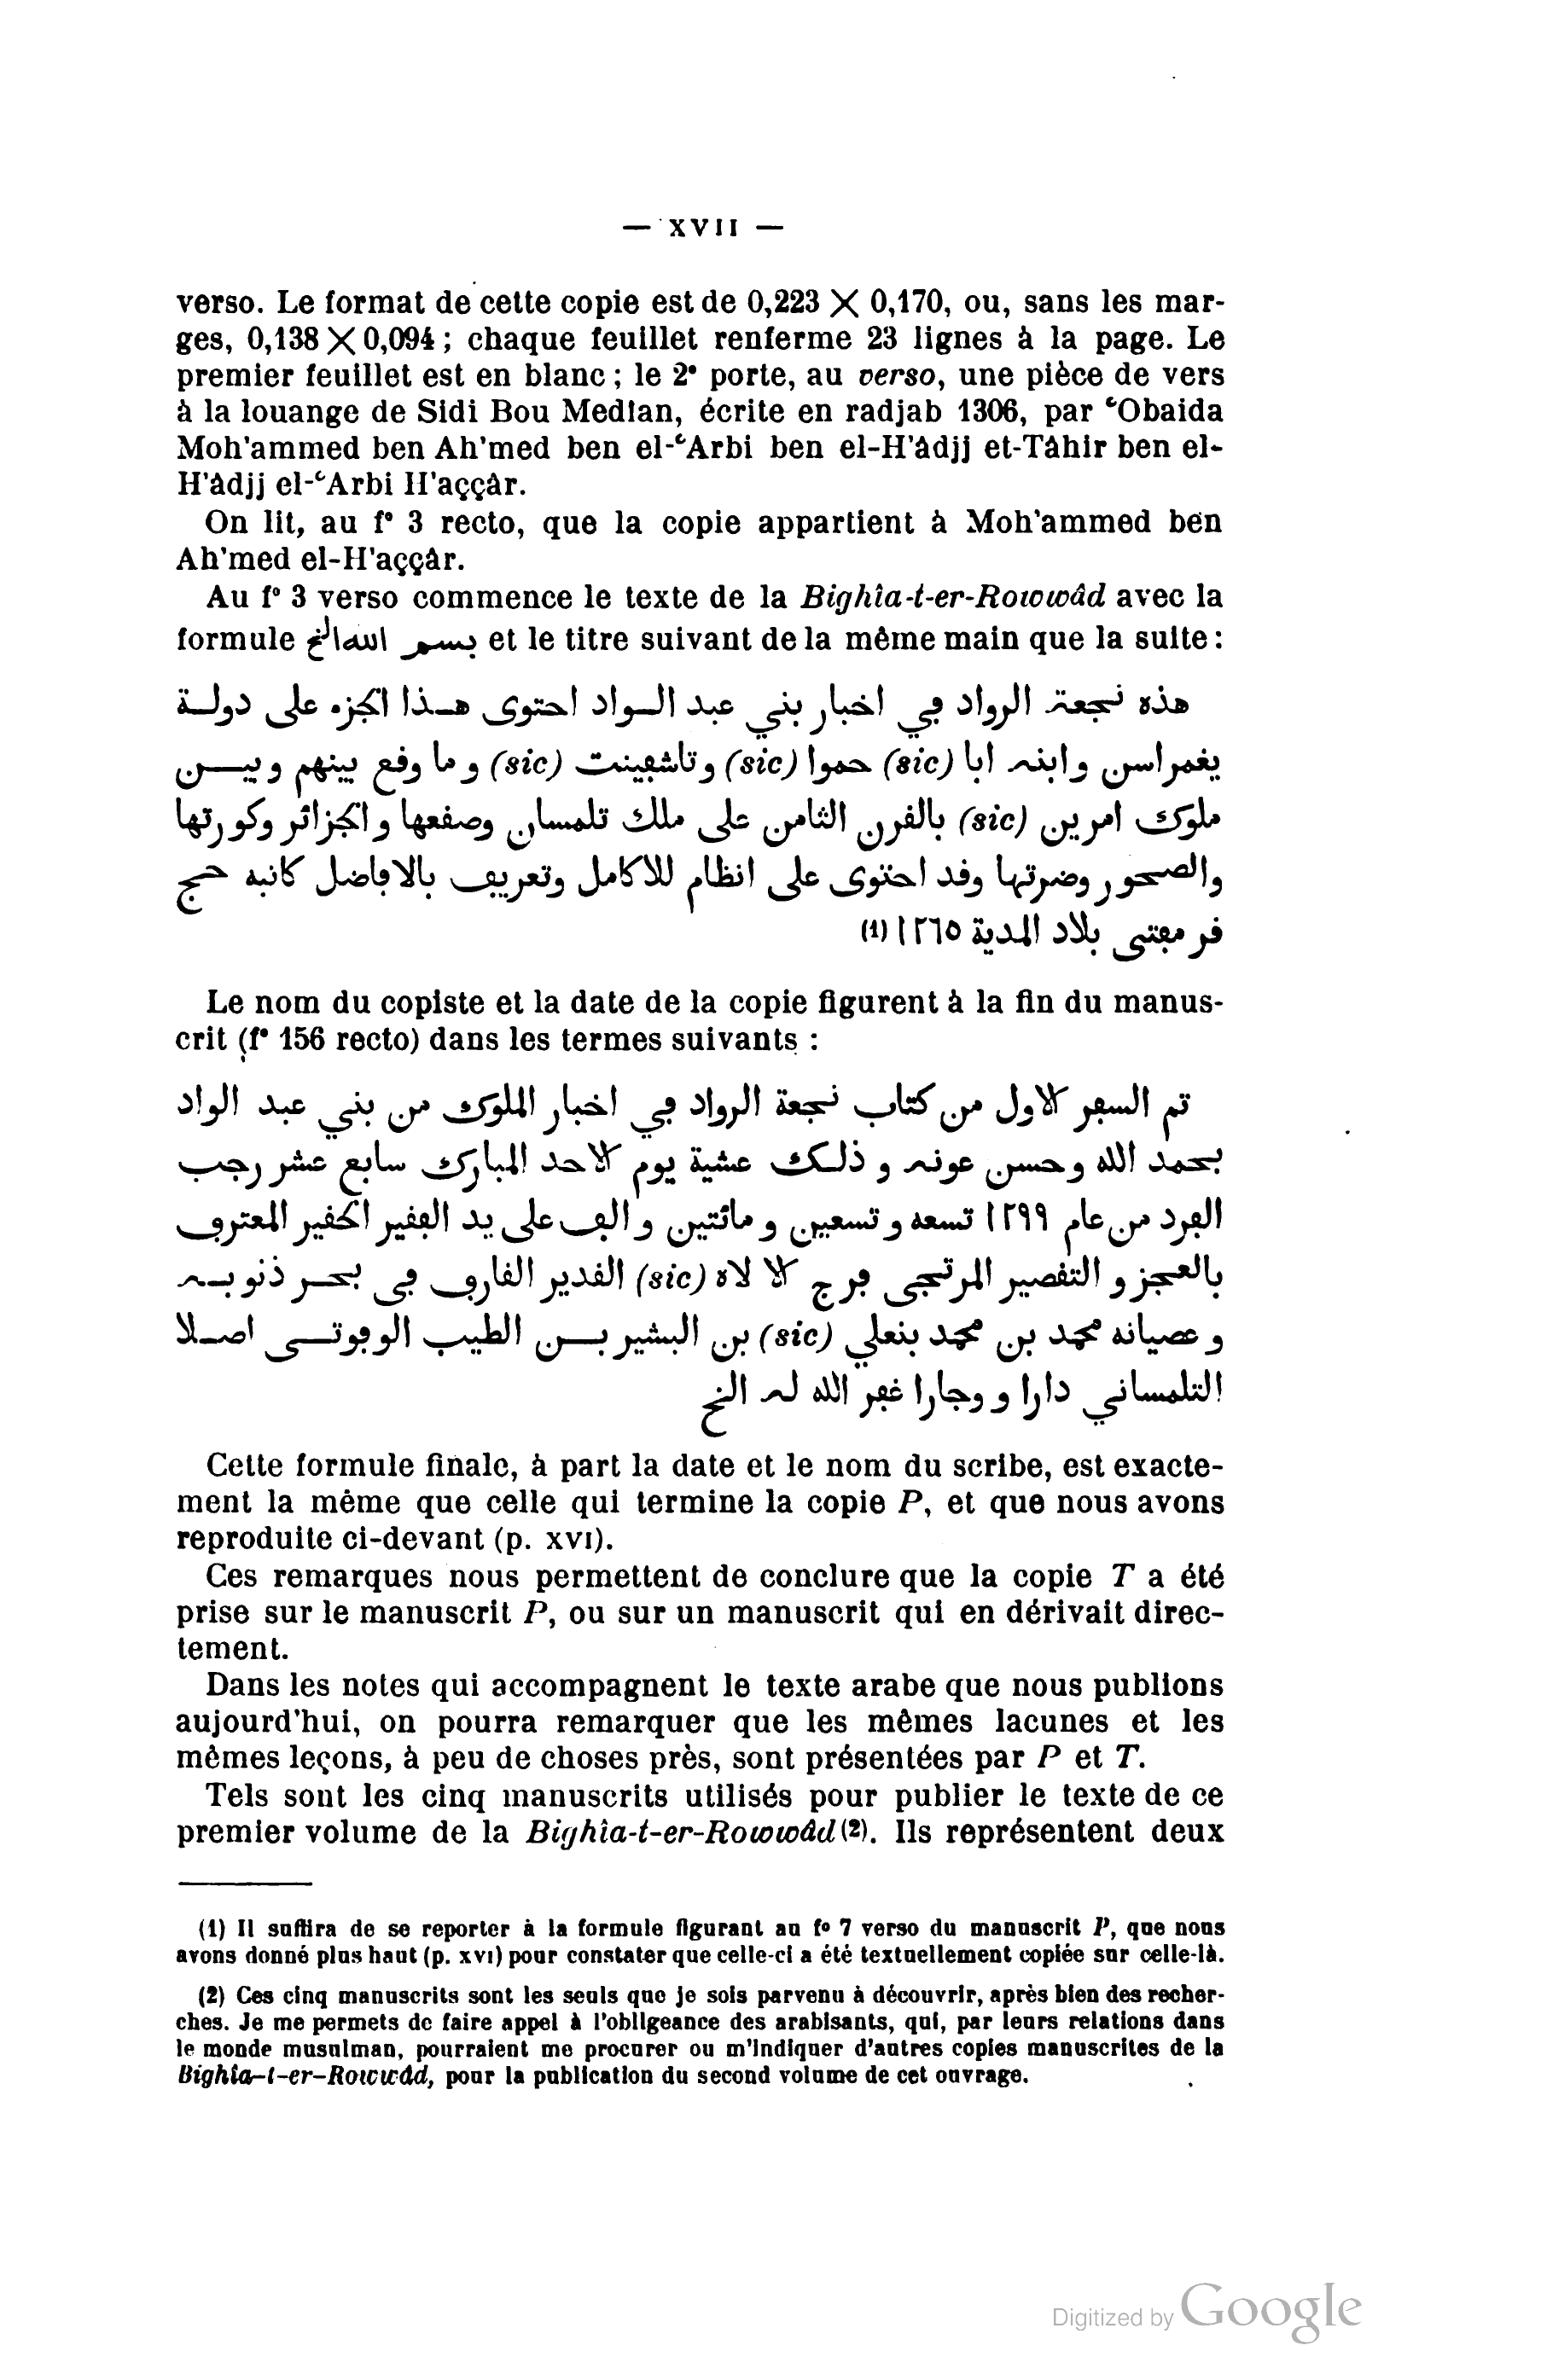 — XVII —
verso. Le format de cette copie est de 0,223 X 0,170, ou, sans les mar-
ges, 0,138 X 0,094 ; chaque feuillet renferme 23 lignes à la page. Le
premier feuillet est en blanc ; le 2ᵉ porte, au verso, une pièce de vers
à la louange de Sidi Bou Median, écrite en radjab 1306, par ʿObaida
Moh'ammed ben Ah'med ben el-ʿArbi ben el-H'âdjj et-Tâhir ben el-
H'âdjj el-ʿArbi H'aççâr.
On lit, au fº 3 recto, que la copie appartient à Moh'ammed ben
Ah'med el-H'aççâr.
Au fº 3 verso commence le texte de la Bighîa-t-er-Rowwâd avec la
formule بسم الله الخ et le titre suivant de la même main que la suite :
هذه نجعة الرواد في اخبار بني عبد الـواد احتوى هـذا الجزء على دولـة
يغمراسن وابنه ابا (sic) حموا (sic) وتاشڢينت (sic) و ما وفع بينهم و بيـــن
ملوك امرين (sic) بالفرن الثامن على ملك تلمسان وصفعها و الجزائر وكورتها
والصحور وضرتها وفد احتوى على انظام للاكامل وتعريڢ بالاڢاضل كاتبه حج
فر مڢتى بلاد المدية ١٢٦٥ (1)
Le nom du copiste et la date de la copie figurent à la fin du manus-
crit (fº 156 recto) dans les termes suivants :
تم السڢر الاول من كتاب نجعة الرواد ڢي اخبار الملوك من بني عبد الواد
بحمد الله و حسن عونه و ذلك عشية يوم الاحد المبارك سابع عشر رجب
الڢرد من عام ١٢٩٩ تسعه و تسعين و مائتين و الڢ على يد الڢفير الحفير المعترڢ
بالعجز و التفصير المرتجى ڢرج الا لاه (sic) الفدير الفارڢ ڢى بحـر ذنوبـه
و عصيانه محمد بن محمد بنعلي (sic) بن البشير بـن الطيب الوڢوتـى اصـلا
التلمساني دارا و وجارا غڢر الله له الخ
Cette formule finale, à part la date et le nom du scribe, est exacte-
ment la même que celle qui termine la copie P, et que nous avons
reproduite ci-devant (p. XVI).
Ces remarques nous permettent de conclure que la copie T a été
prise sur le manuscrit P, ou sur un manuscrit qui en dérivait direc-
tement.
Dans les notes qui accompagnent le texte arabe que nous publions
aujourd'hui, on pourra remarquer que les mêmes lacunes et les
mêmes leçons, à peu de choses près, sont présentées par P et T.
Tels sont les cinq manuscrits utilisés pour publier le texte de ce
premier volume de la Bighîa-t-er-Rowwâd (2). Ils représentent deux
(1) Il suffira de se reporter à la formule figurant au fº 7 verso du manuscrit P, que nous
avons donné plus haut (p. XVI) pour constater que celle-ci a été textuellement copiée sur celle-là.
(2) Ces cinq manuscrits sont les seuls que je sois parvenu à découvrir, après bien des recher-
ches. Je me permets de faire appel à l'obligeance des arabisants, qui, par leurs relations dans
le monde musulman, pourraient me procurer ou m'indiquer d'autres copies manuscrites de la
Bighîa-t-er-Rowwâd, pour la publication du second volume de cet ouvrage.
Digitized by Google